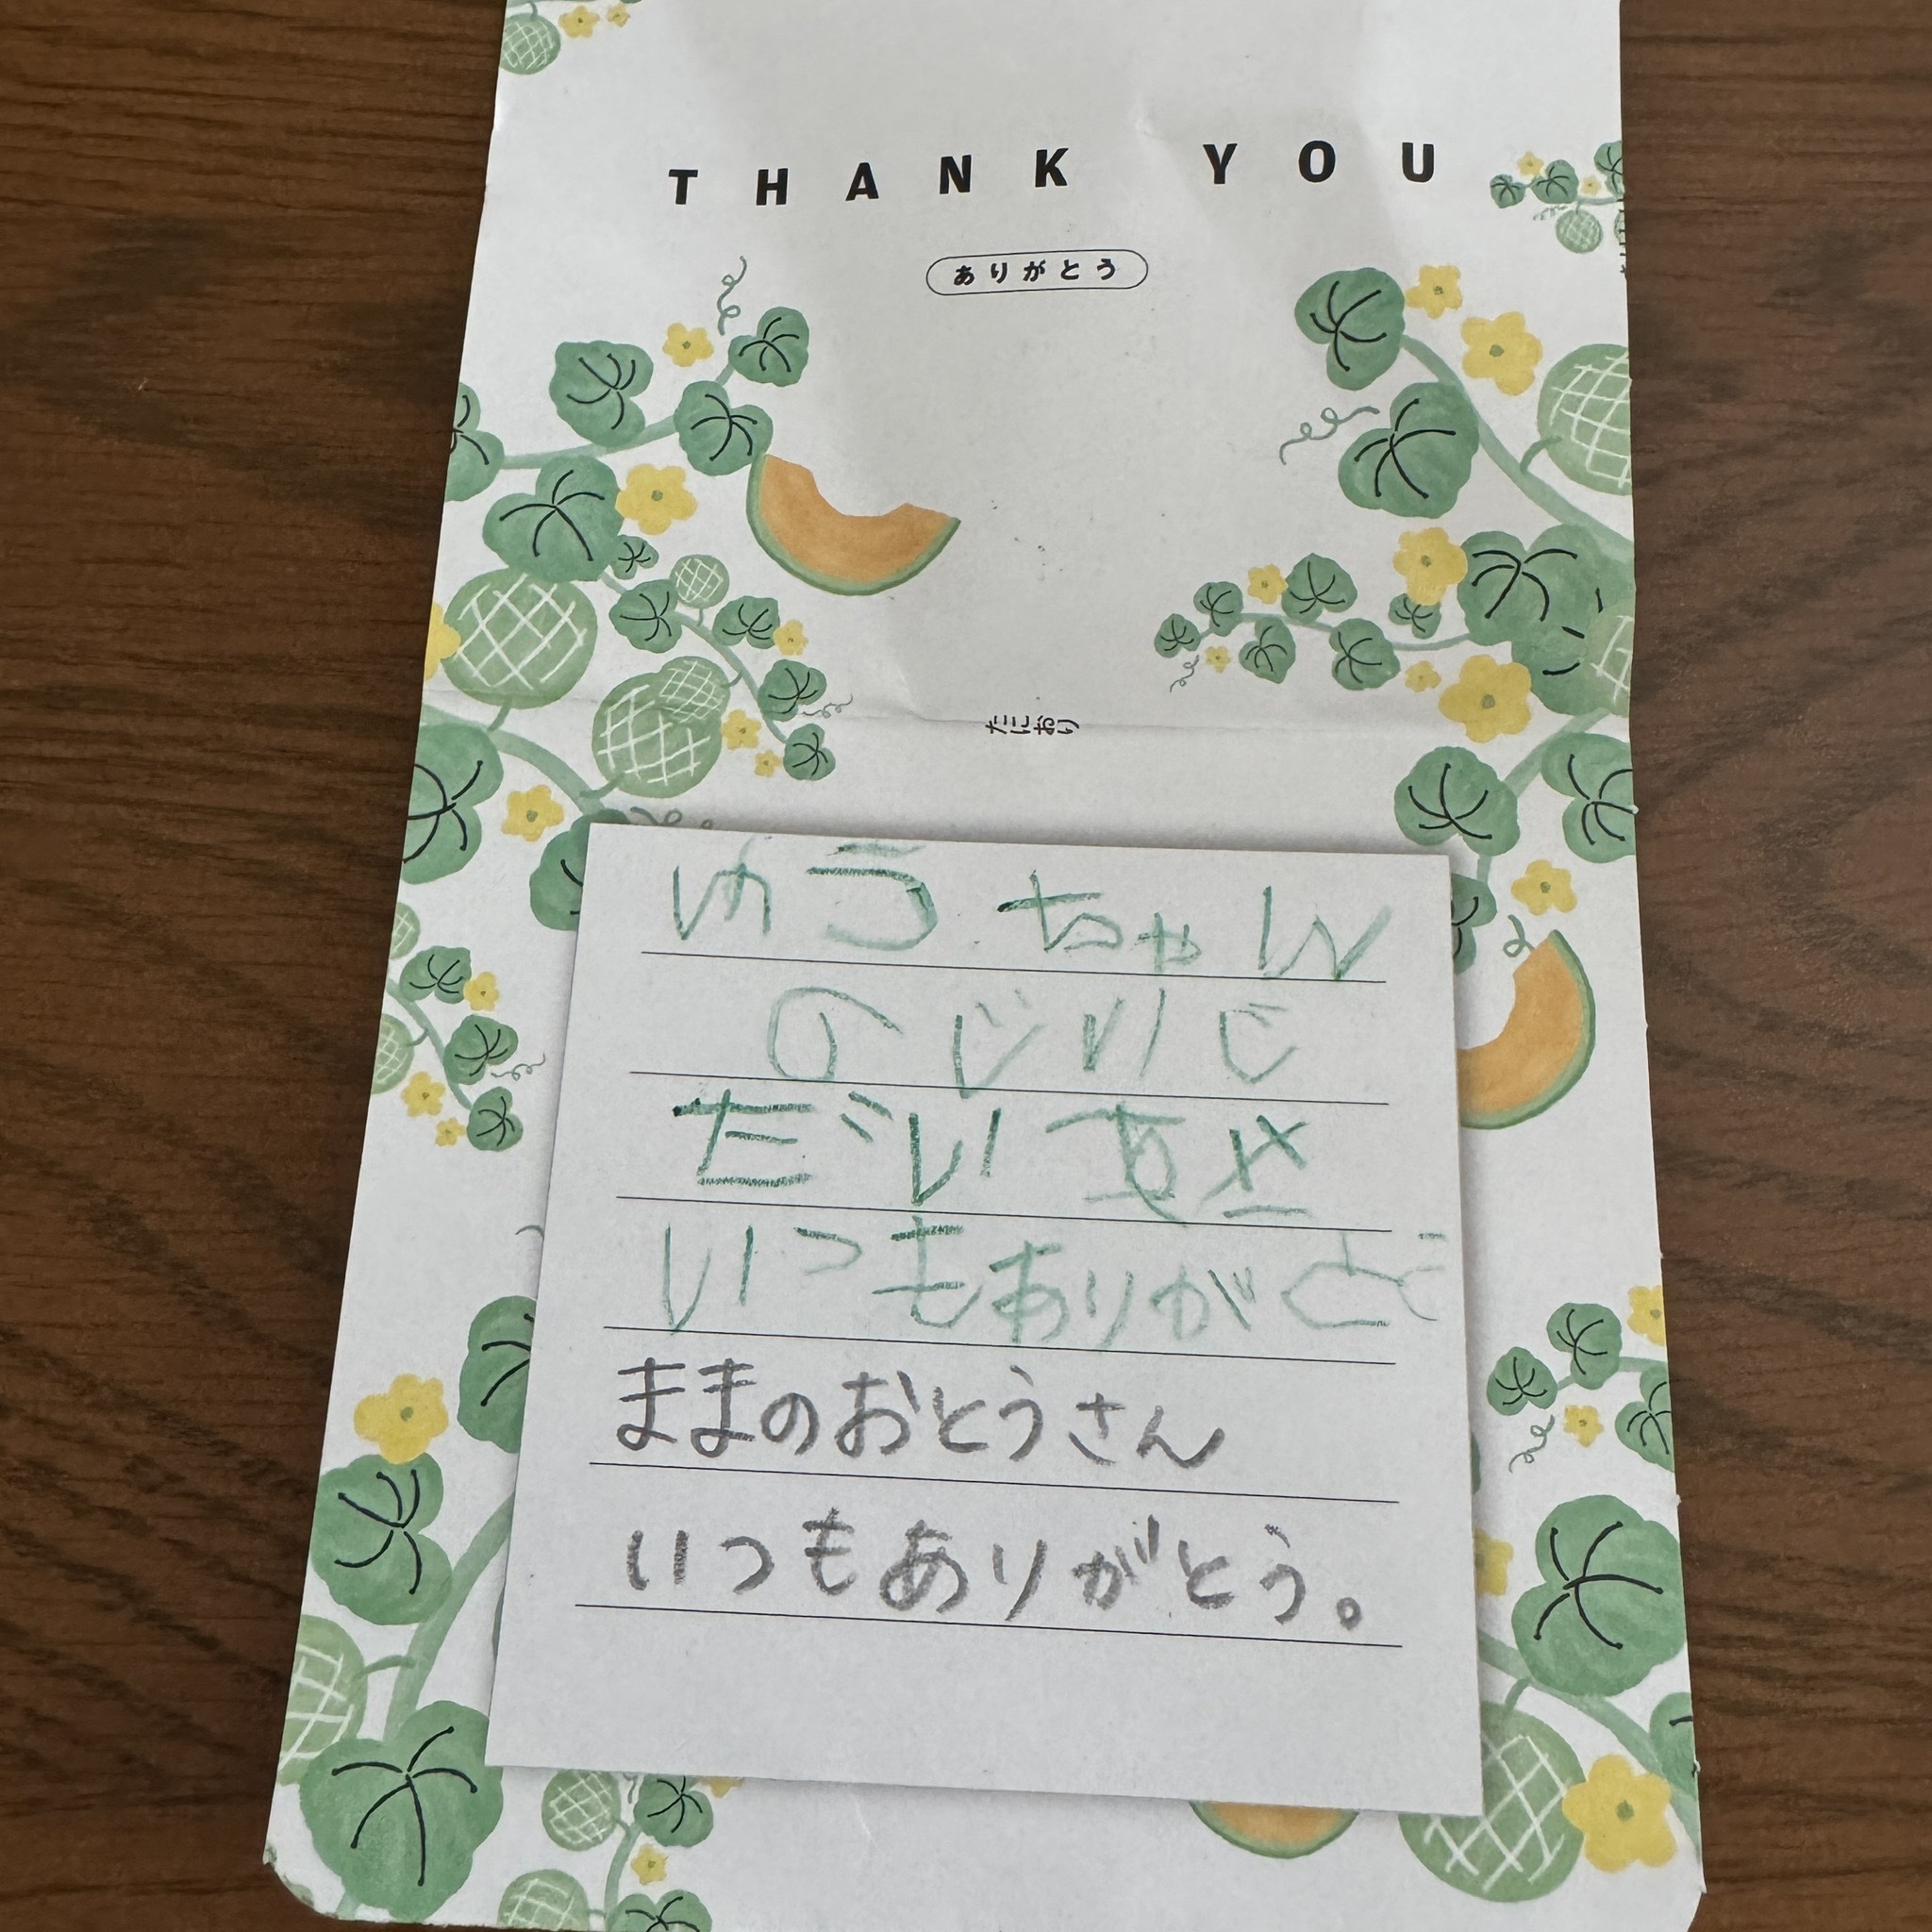 THANK YOU
ありがとう
たにおり
ゆうちゃん
のじいじ
だいすき
いつもありがとう
ままのおとうさん
いつもありがとう。